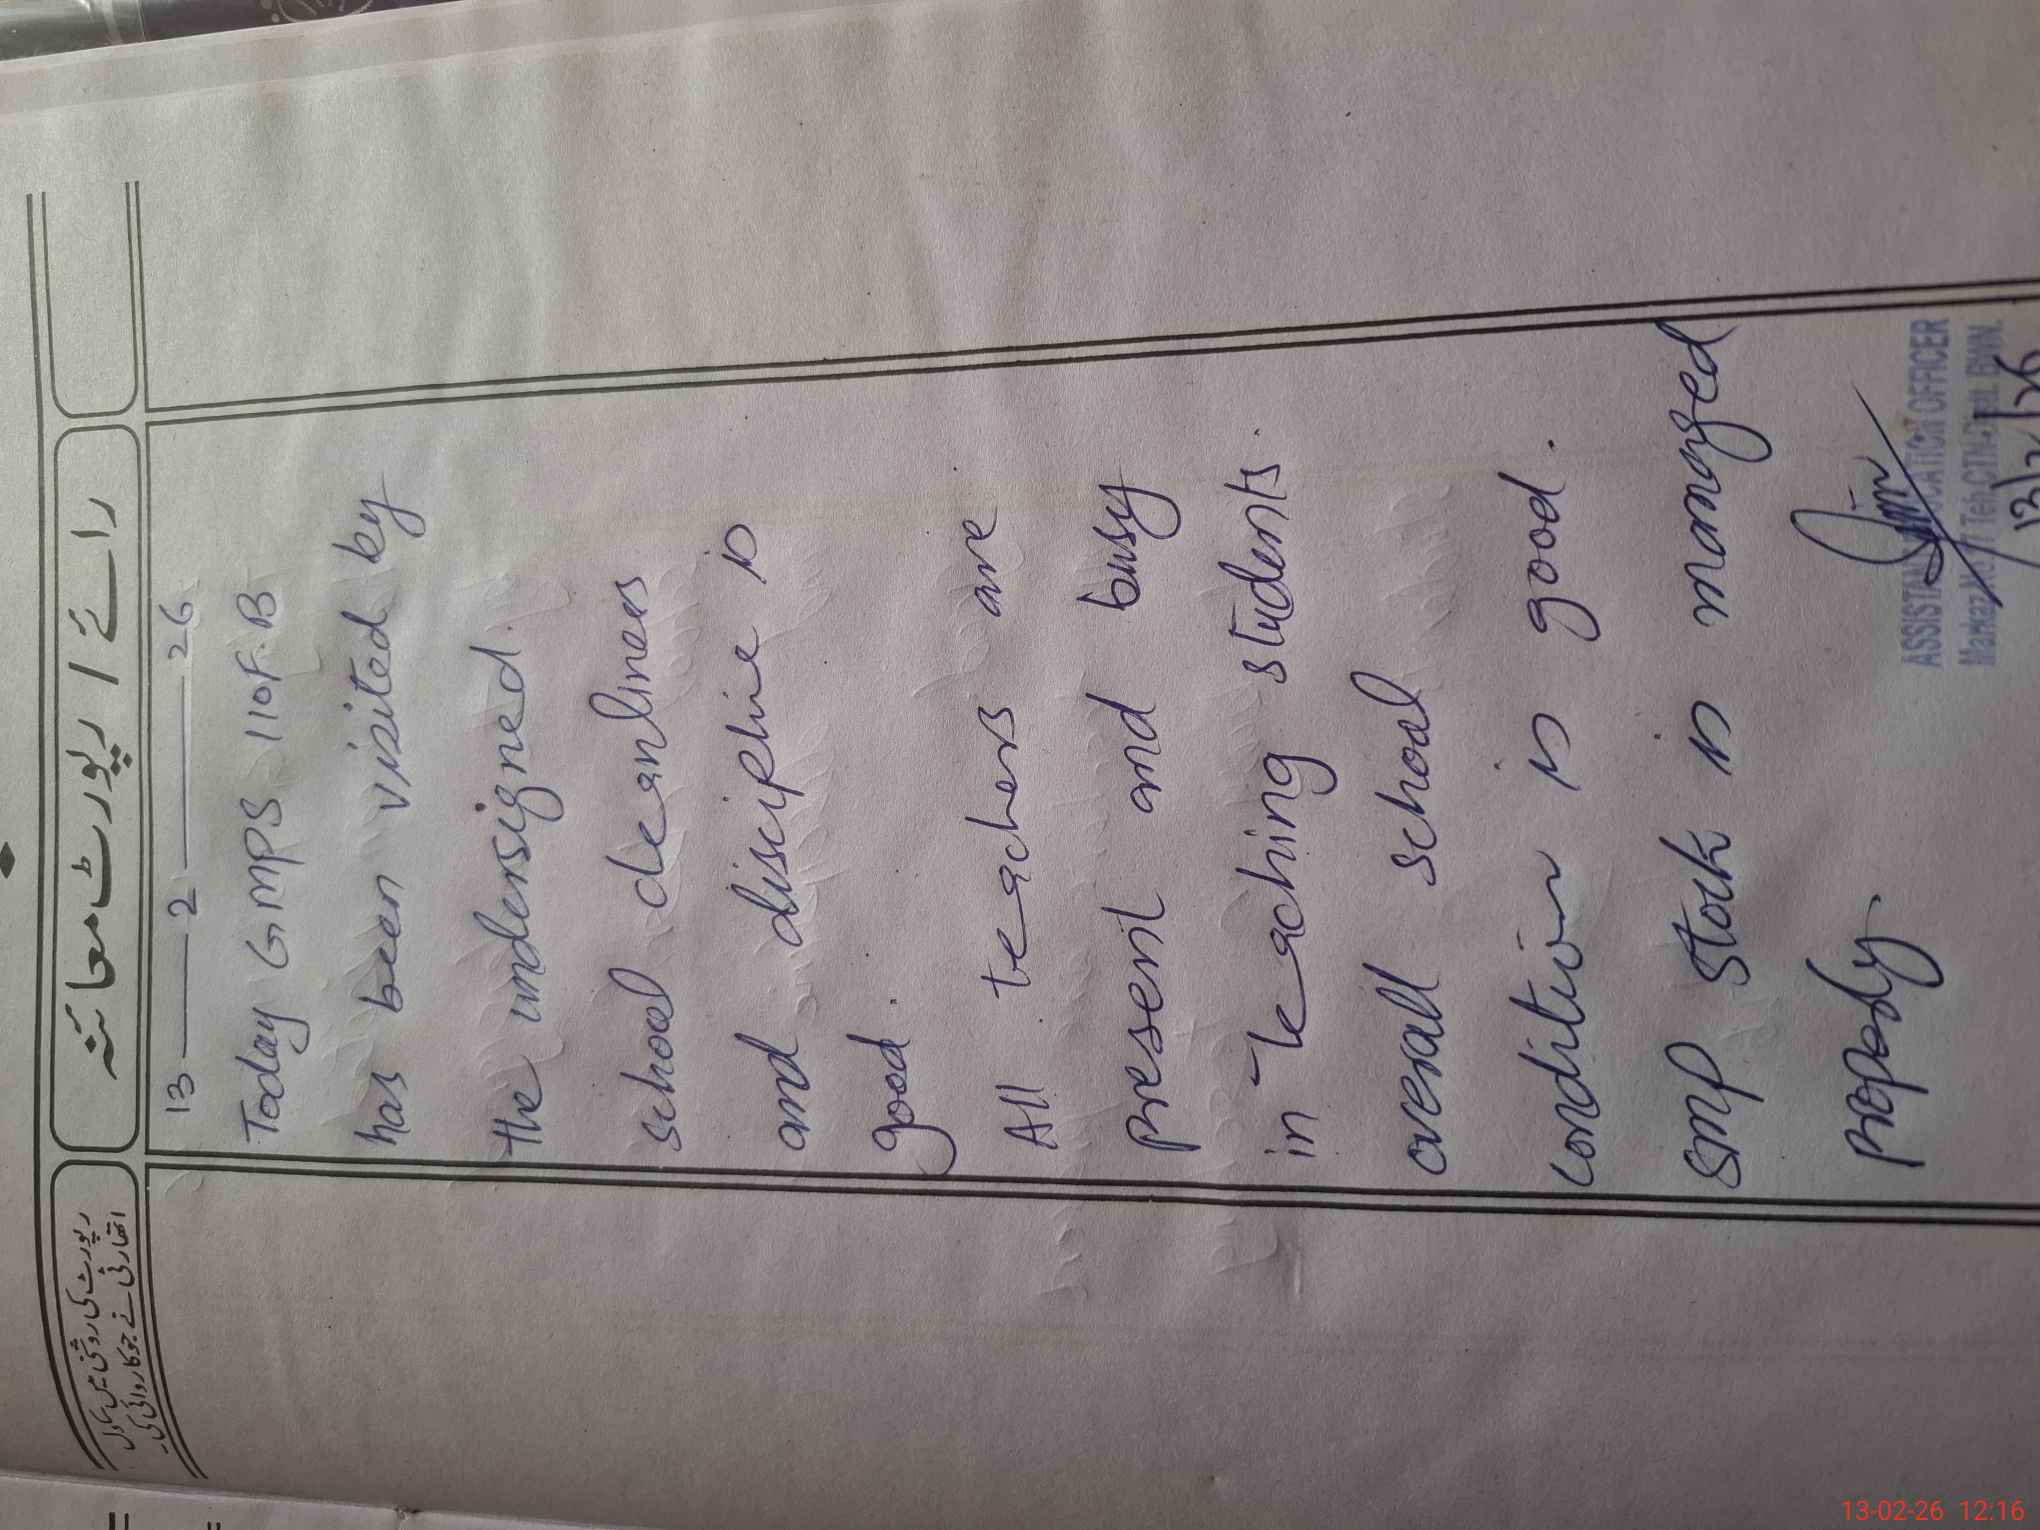 رائے / رپورٹ معائنہ
رپورٹ کی روشنی میں سکول
اتھارٹی نے جو کاروائی کی۔
13 — 2 — 26
Today GMPS 110F.B
has been visited by
the undersigned.
school cleanliness
and discipline is
good.
All teachers are
present and busy
in teaching students.
overall school
condition is good.
SMP Stock is managed
properly.
ASSISTANT EDUCATION OFFICER
Markaz No. Teh. CTN. BWN.
13/2/26
13-02-26 12:16